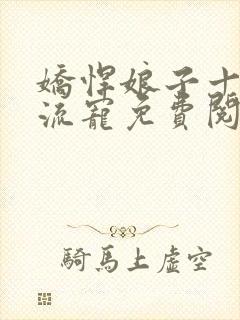 嬌悍娘子十
流寵免費閱
騎馬上虛空